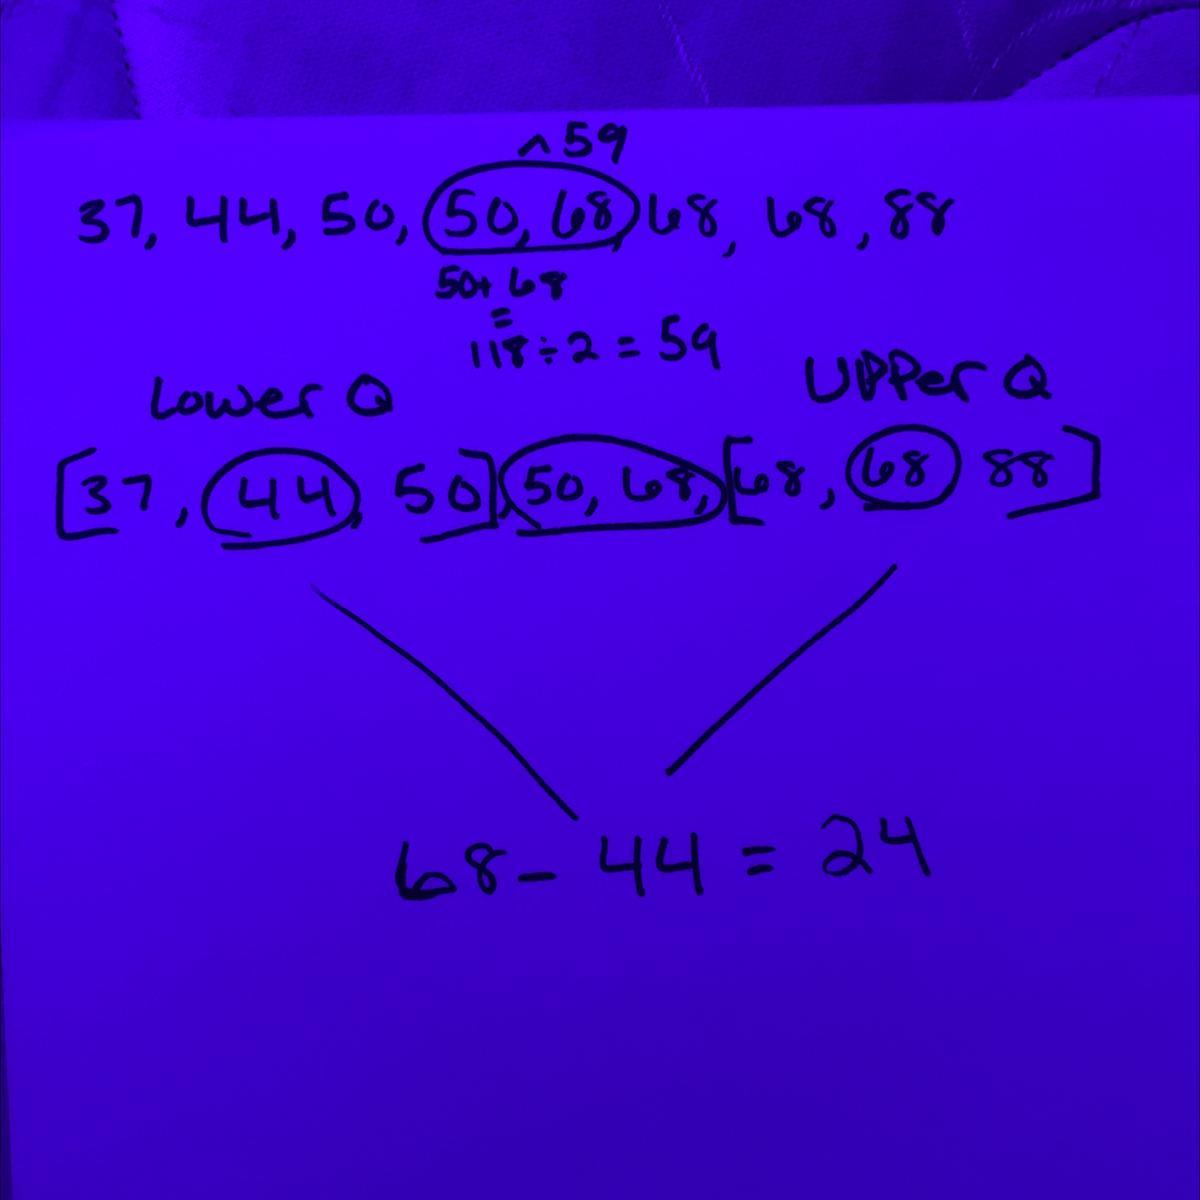 ^59
37, 44, 50, 50, 68, 68, 68, 88
50+ 68
=
118÷2 = 59
Lower Q
UPPer Q
[37, 44, 50] 50, 68, [68, 68 88]
68- 44 = 24